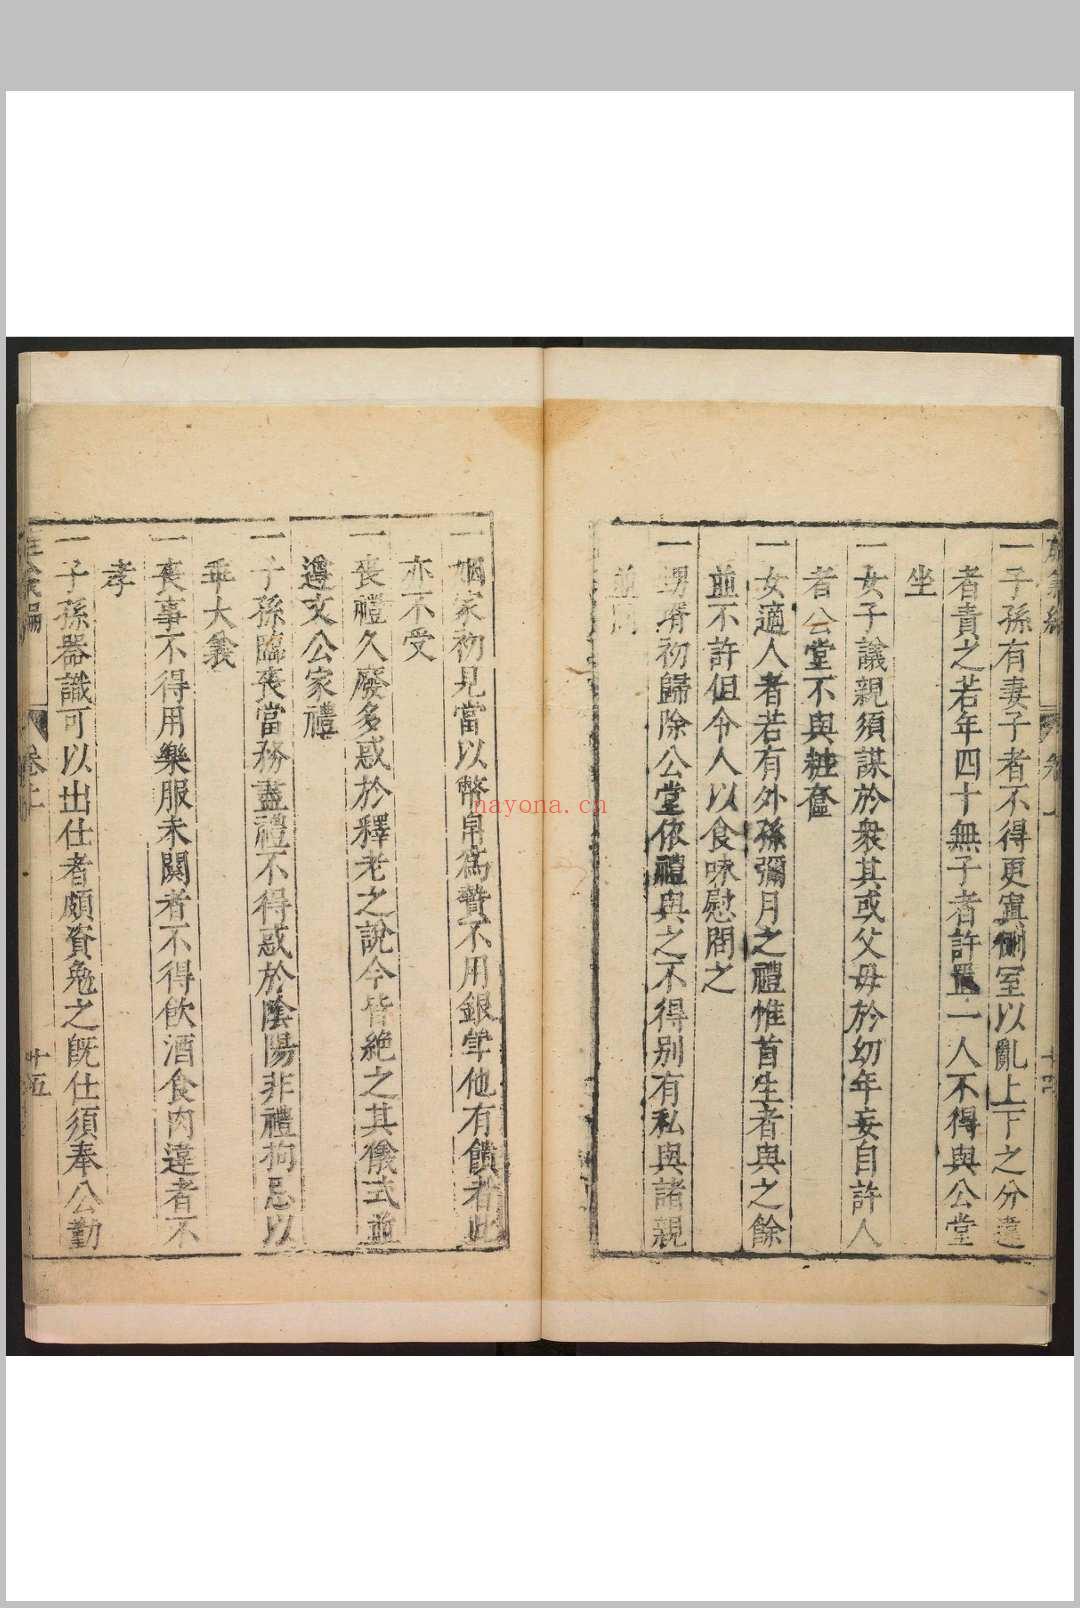 一子孫有妻子者不得更寘側室以亂上下之分違
者責之若年四十無子者許置一人不得與公堂
坐
一女子議親須謀於衆其或父母於幼年妄自許人
者公堂不與粧奩
一女適人者若有外孫彌月之禮惟首生者與之餘
並不許但令人以食味慰問之
一甥壻初歸除公堂依禮與之不得别有私與諸親
並同
一姻家初見當以幣帛爲贄不用銀斝他有饋者此
亦不受
一喪禮久廢多惑於釋老之說今皆絶之其儀式並
遵文公家禮
一子孫臨喪當務盡禮不得惑於陰陽非禮拘忌以
乖大義
一喪事不得用樂服未闋者不得飲酒食肉違者不
孝
一子孫器識可以出仕者頗資勉之旣仕須奉公勤
卷上
廿五
nayona.cn